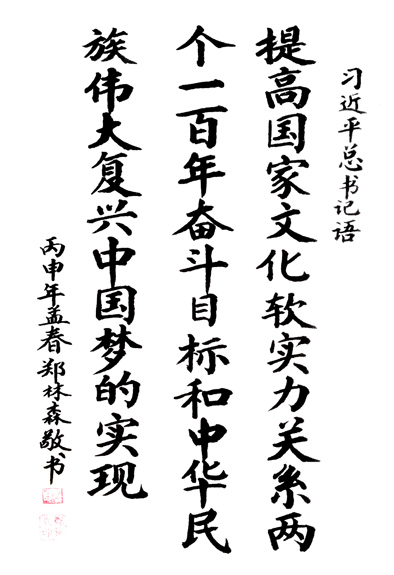 习近平总书记语
提高国家文化软实力关系两
个一百年奋斗目标和中华民
族伟大复兴中国梦的实现
丙申年孟春郑林森敬书